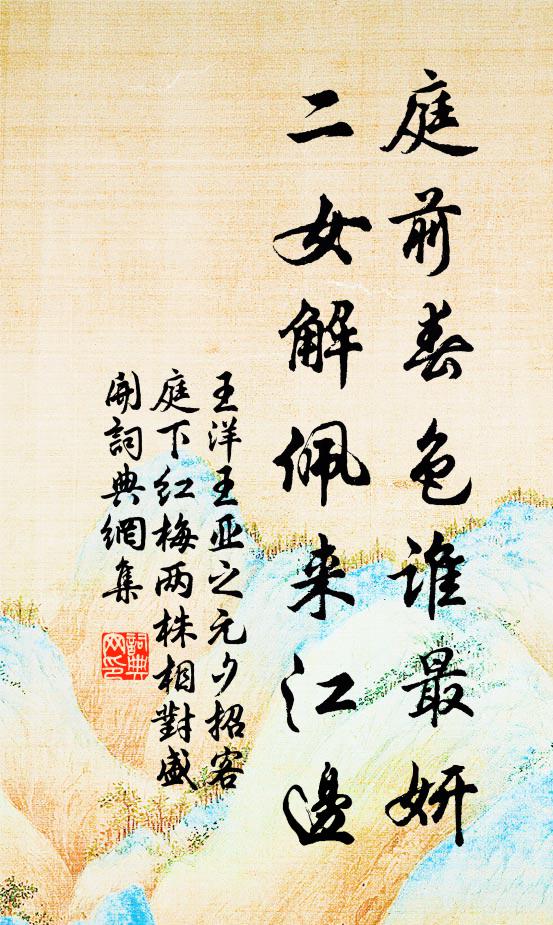 庭前春色谁最妍
二女解佩来江边
王洋王亚之元夕招客
庭下红梅两株相對盛
開詞典網集
詞典
网印